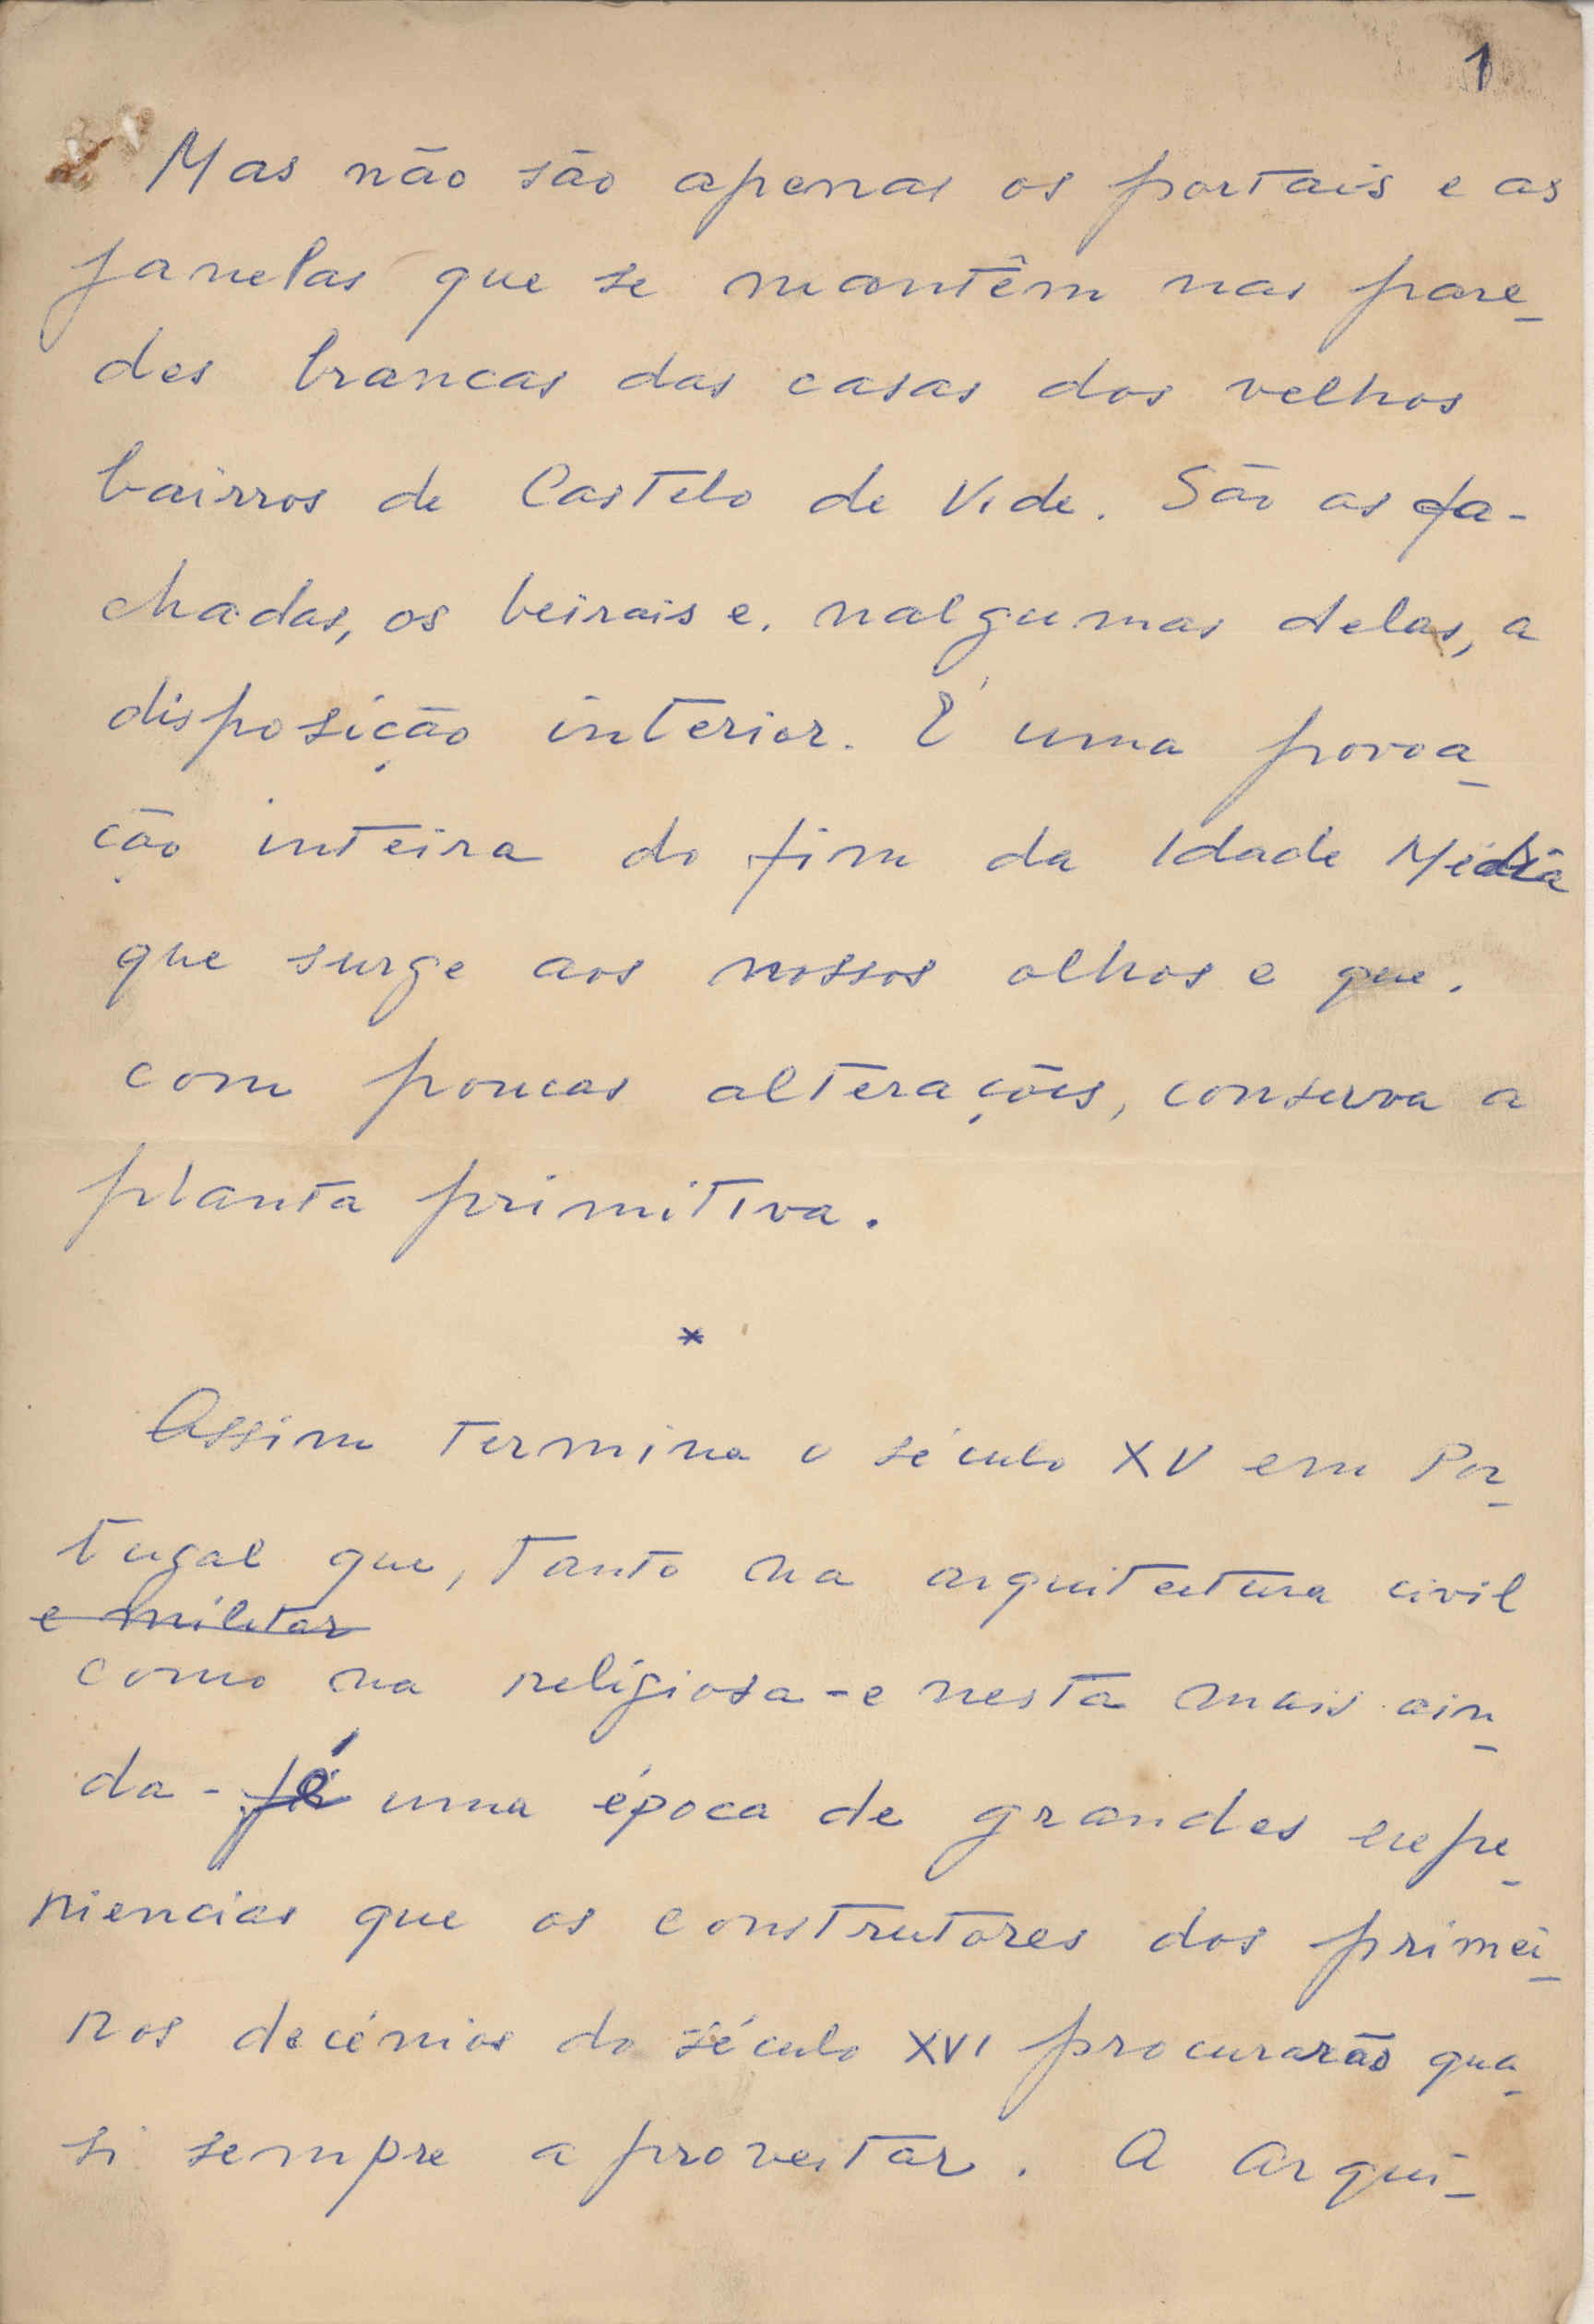 1
Mas não são apenas os portais e as
janelas que se mantêm nas pare-
des brancas das casas dos velhos
bairros de Castelo de Vide. São as fa-
chadas, os beirais e, nalgumas delas, a
disposição interior. É uma povoa-
ção inteira do fim da Idade Média
que surge aos nossos olhos e que,
com poucas alterações, conserva a
planta primitiva.
*
Assim termina o século XV em Por-
tugal que, tanto na arquitectura civil
e militar
como na religiosa - e nesta mais ain-
da - é uma época de grandes expe-
riencias que os construtores dos primei-
ros decénios do século XVI procurarão qua-
si sempre aproveitar. A arqui-